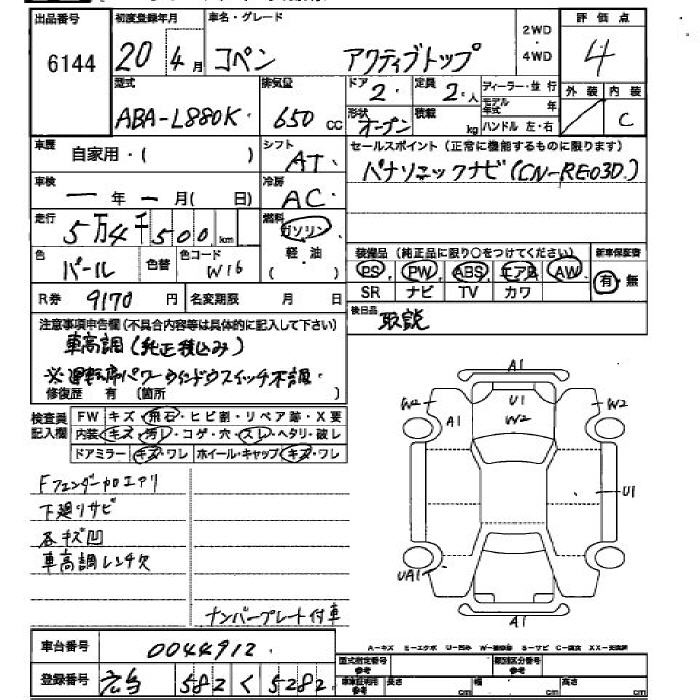 出品番号 初度登録年月 車名・グレード 2WD 評価点
6144 20 4月 コペン アクティブトップ 4WD 4
型式 排気量 ドア 定員 ディーラー・並行 外装 内装
ABA-L880K 650cc 2 2人 モデル年式 年 C
形状 オープン 積載 kg ハンドル 左・右
車歴 自家用・( ) シフト AT セールスポイント(正常に機能するものに限ります)
パナソニックナビ(CN-RE03D)
車検 一年一月(日) 冷房 AC
走行 5万4千500km 燃料 ガソリン
軽油
( )
装備品(純正品に限り○をつけてください) 新車保証書
色 パール 色替 色コード W16 PS PW ABS エアB AW 有・無
SR ナビ TV カワ
R券 9170円 名変期限 月 日 後日品 取説
注意事項申告欄(不具合内容等は具体的に記入して下さい)
車高調(純正積込み)
※運転席パワーウィンドウスイッチ不調.
修復歴 有 (箇所 )
検査員記入欄 FW キズ・飛石・ヒビ割・リペア跡・X要
内装 キズ・汚レ・コゲ・穴・スレ・ヘタリ・破レ
ドアミラー キズ・ワレ ホイール・キャップ キズ・ワレ
Fフェンダー加工アリ
下廻リサビ
各キズ凹
車高調レンチ欠
ナンバープレート付車
A1
W2 A1 U1 W2 W2
U1
UA1
A1
A-キズ
車台番号 0044912
登録番号 582 く 5282
型式指定番号 参考 類別区分番号 参考
車車証明用 参考 長さ cm 幅 cm 高さ cm